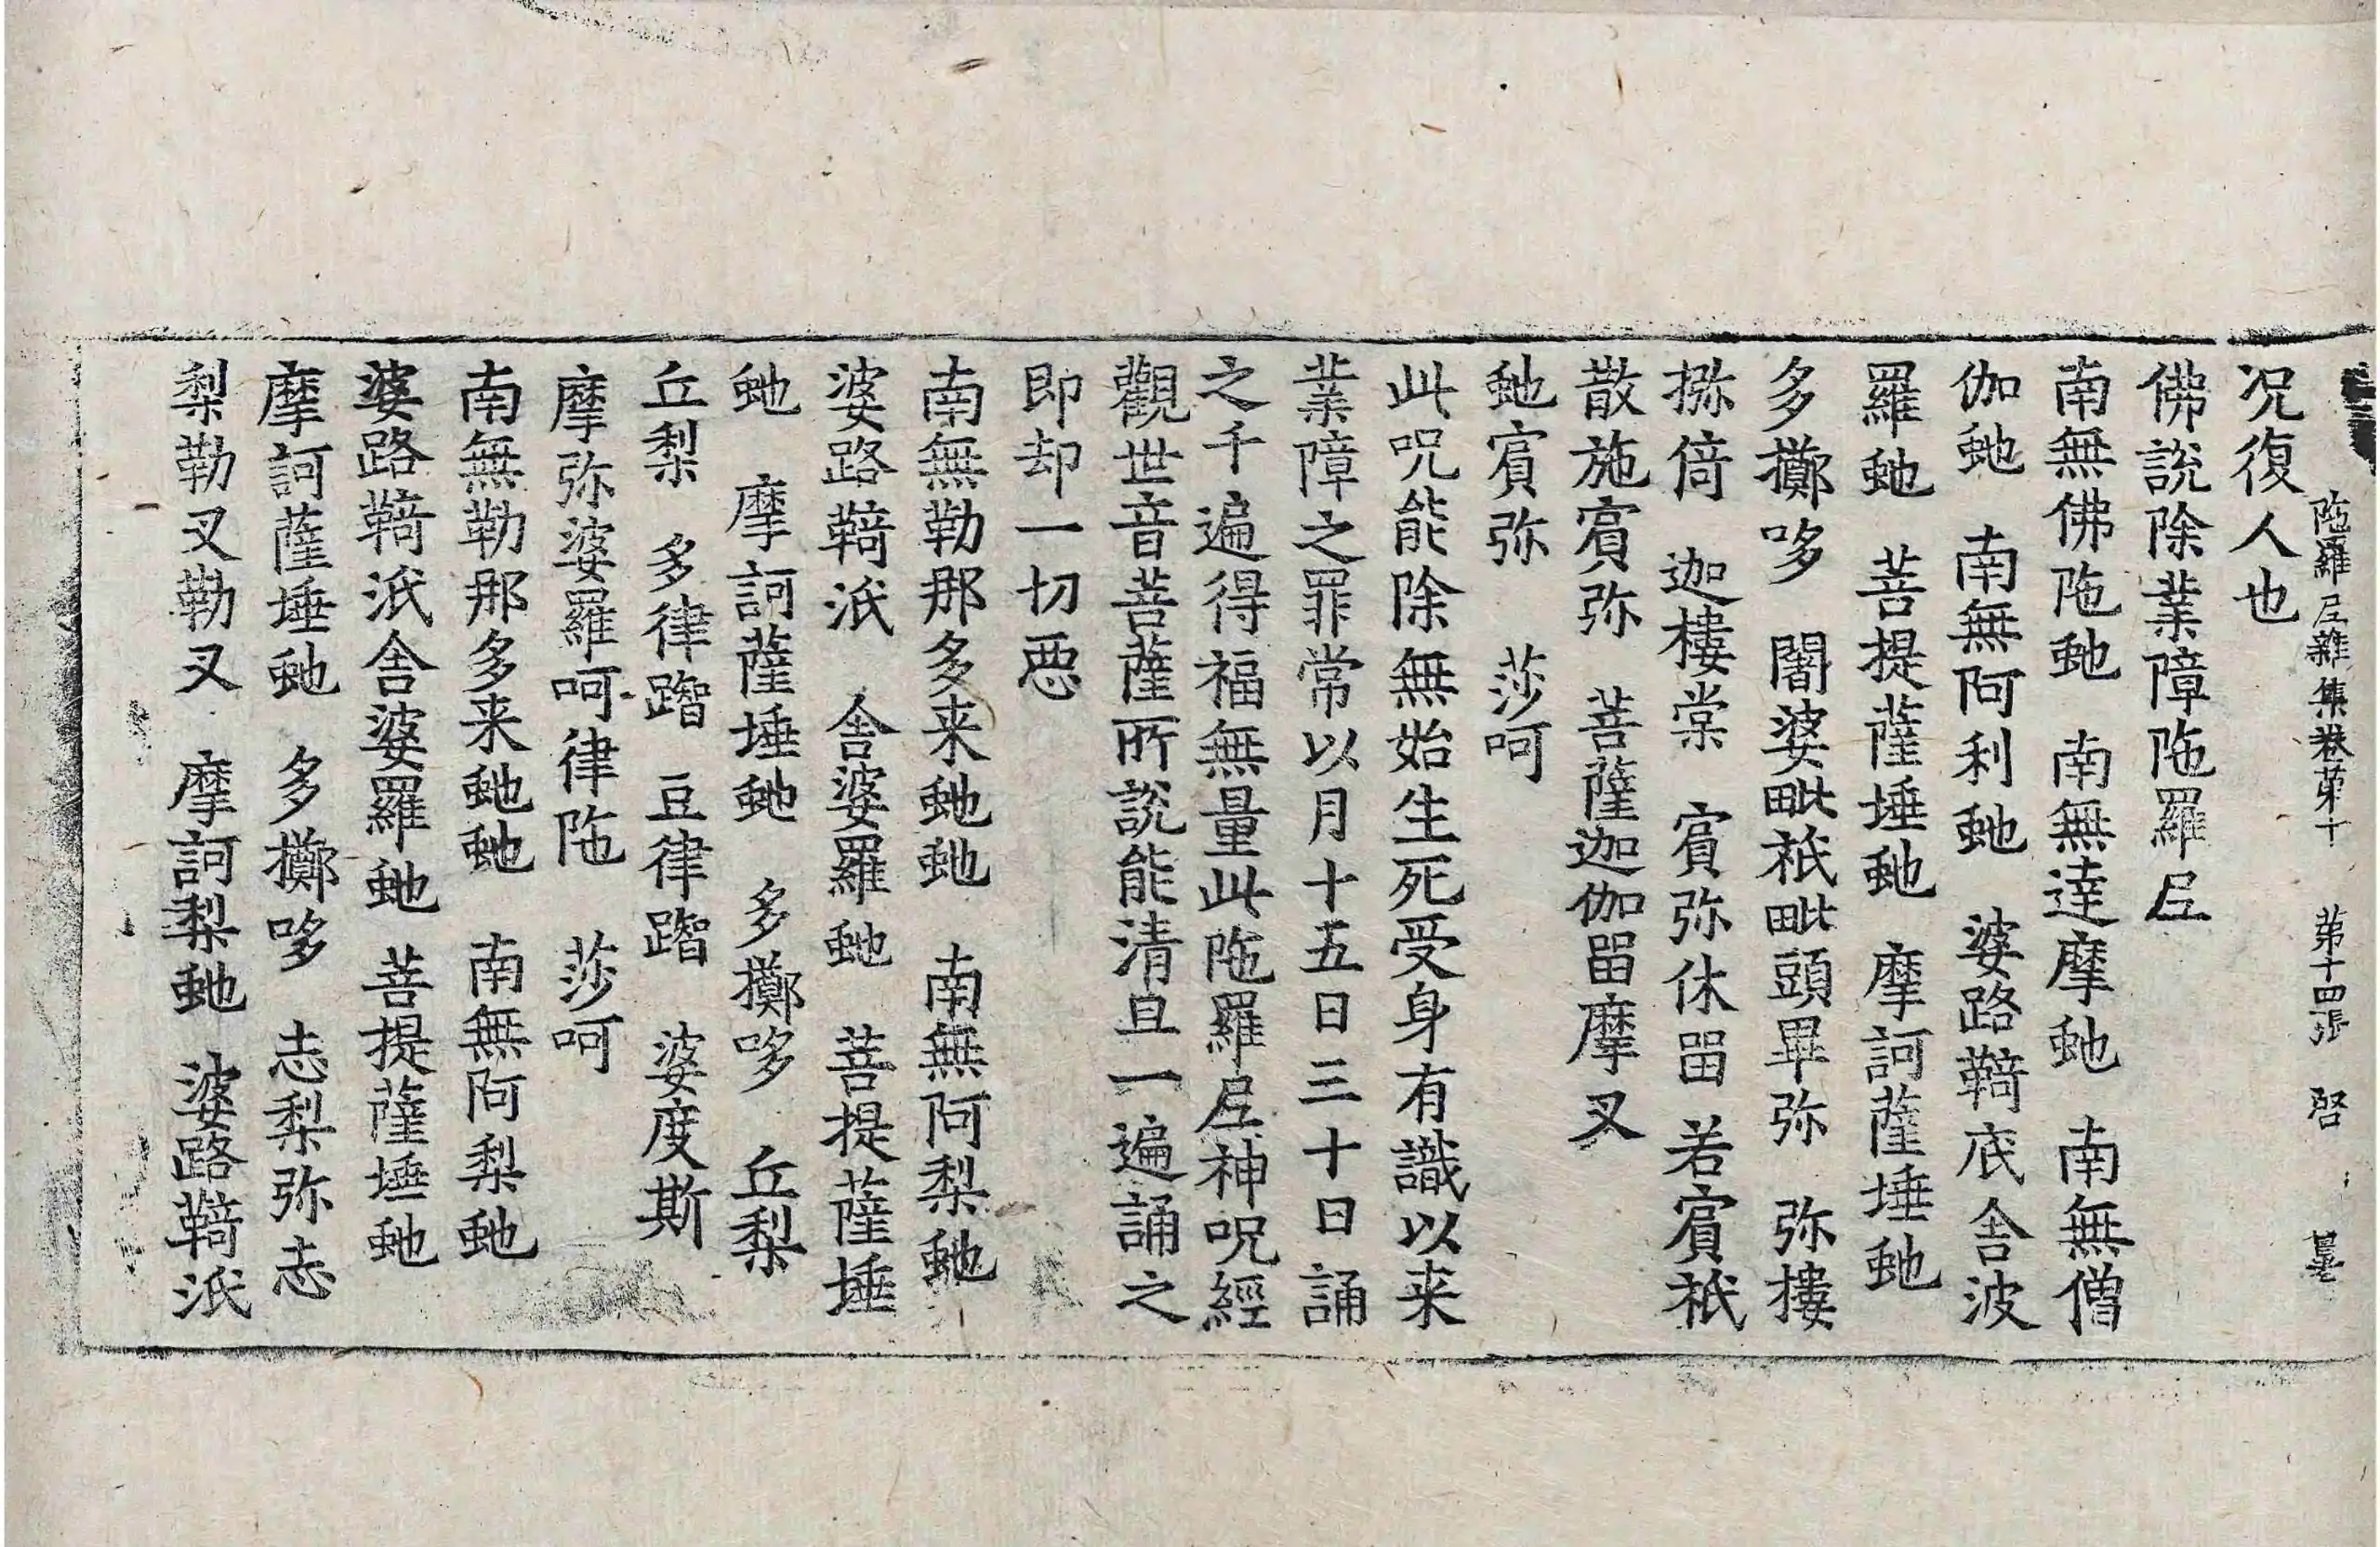 陁羅尼雜集卷苐十　苐十四張　啓
况復人也
佛說除業障陁羅尼
南無佛陁虵　南無達摩虵　南無僧
伽虵　南無阿利虵　婆路鞯底舎波
羅虵　菩提薩埵虵　摩訶薩埵虵
多擲哆　闍婆毗袛毗頭畢弥　弥摟
捺倍　迦摟棠　賔弥休留　若賔袛
散施賔弥　菩薩迦伽留摩叉
虵賔弥　莎呵
此呪能除無始生死受身有識以来
業障之罪常以月十五日三十日誦
之千遍得福無量此陁羅尼神呪經
觀世音菩薩所說能清旦一遍誦之
即却一切惡
南無勒那多来虵虵　南無阿梨虵
婆路鞯泜　舎婆羅虵　菩提薩埵
虵　摩訶薩埵虵　多擲哆　丘梨
丘梨　多律䠦　豆律䠦　婆度斯
摩弥婆羅呵律陁　莎呵
南無勒那多来虵虵　南無阿梨虵
婆路鞯泜舎婆羅虵　菩提薩埵虵
摩訶薩埵虵　多擲哆　志梨弥志
梨勒叉勒叉　摩訶梨虵　婆路鞯泜